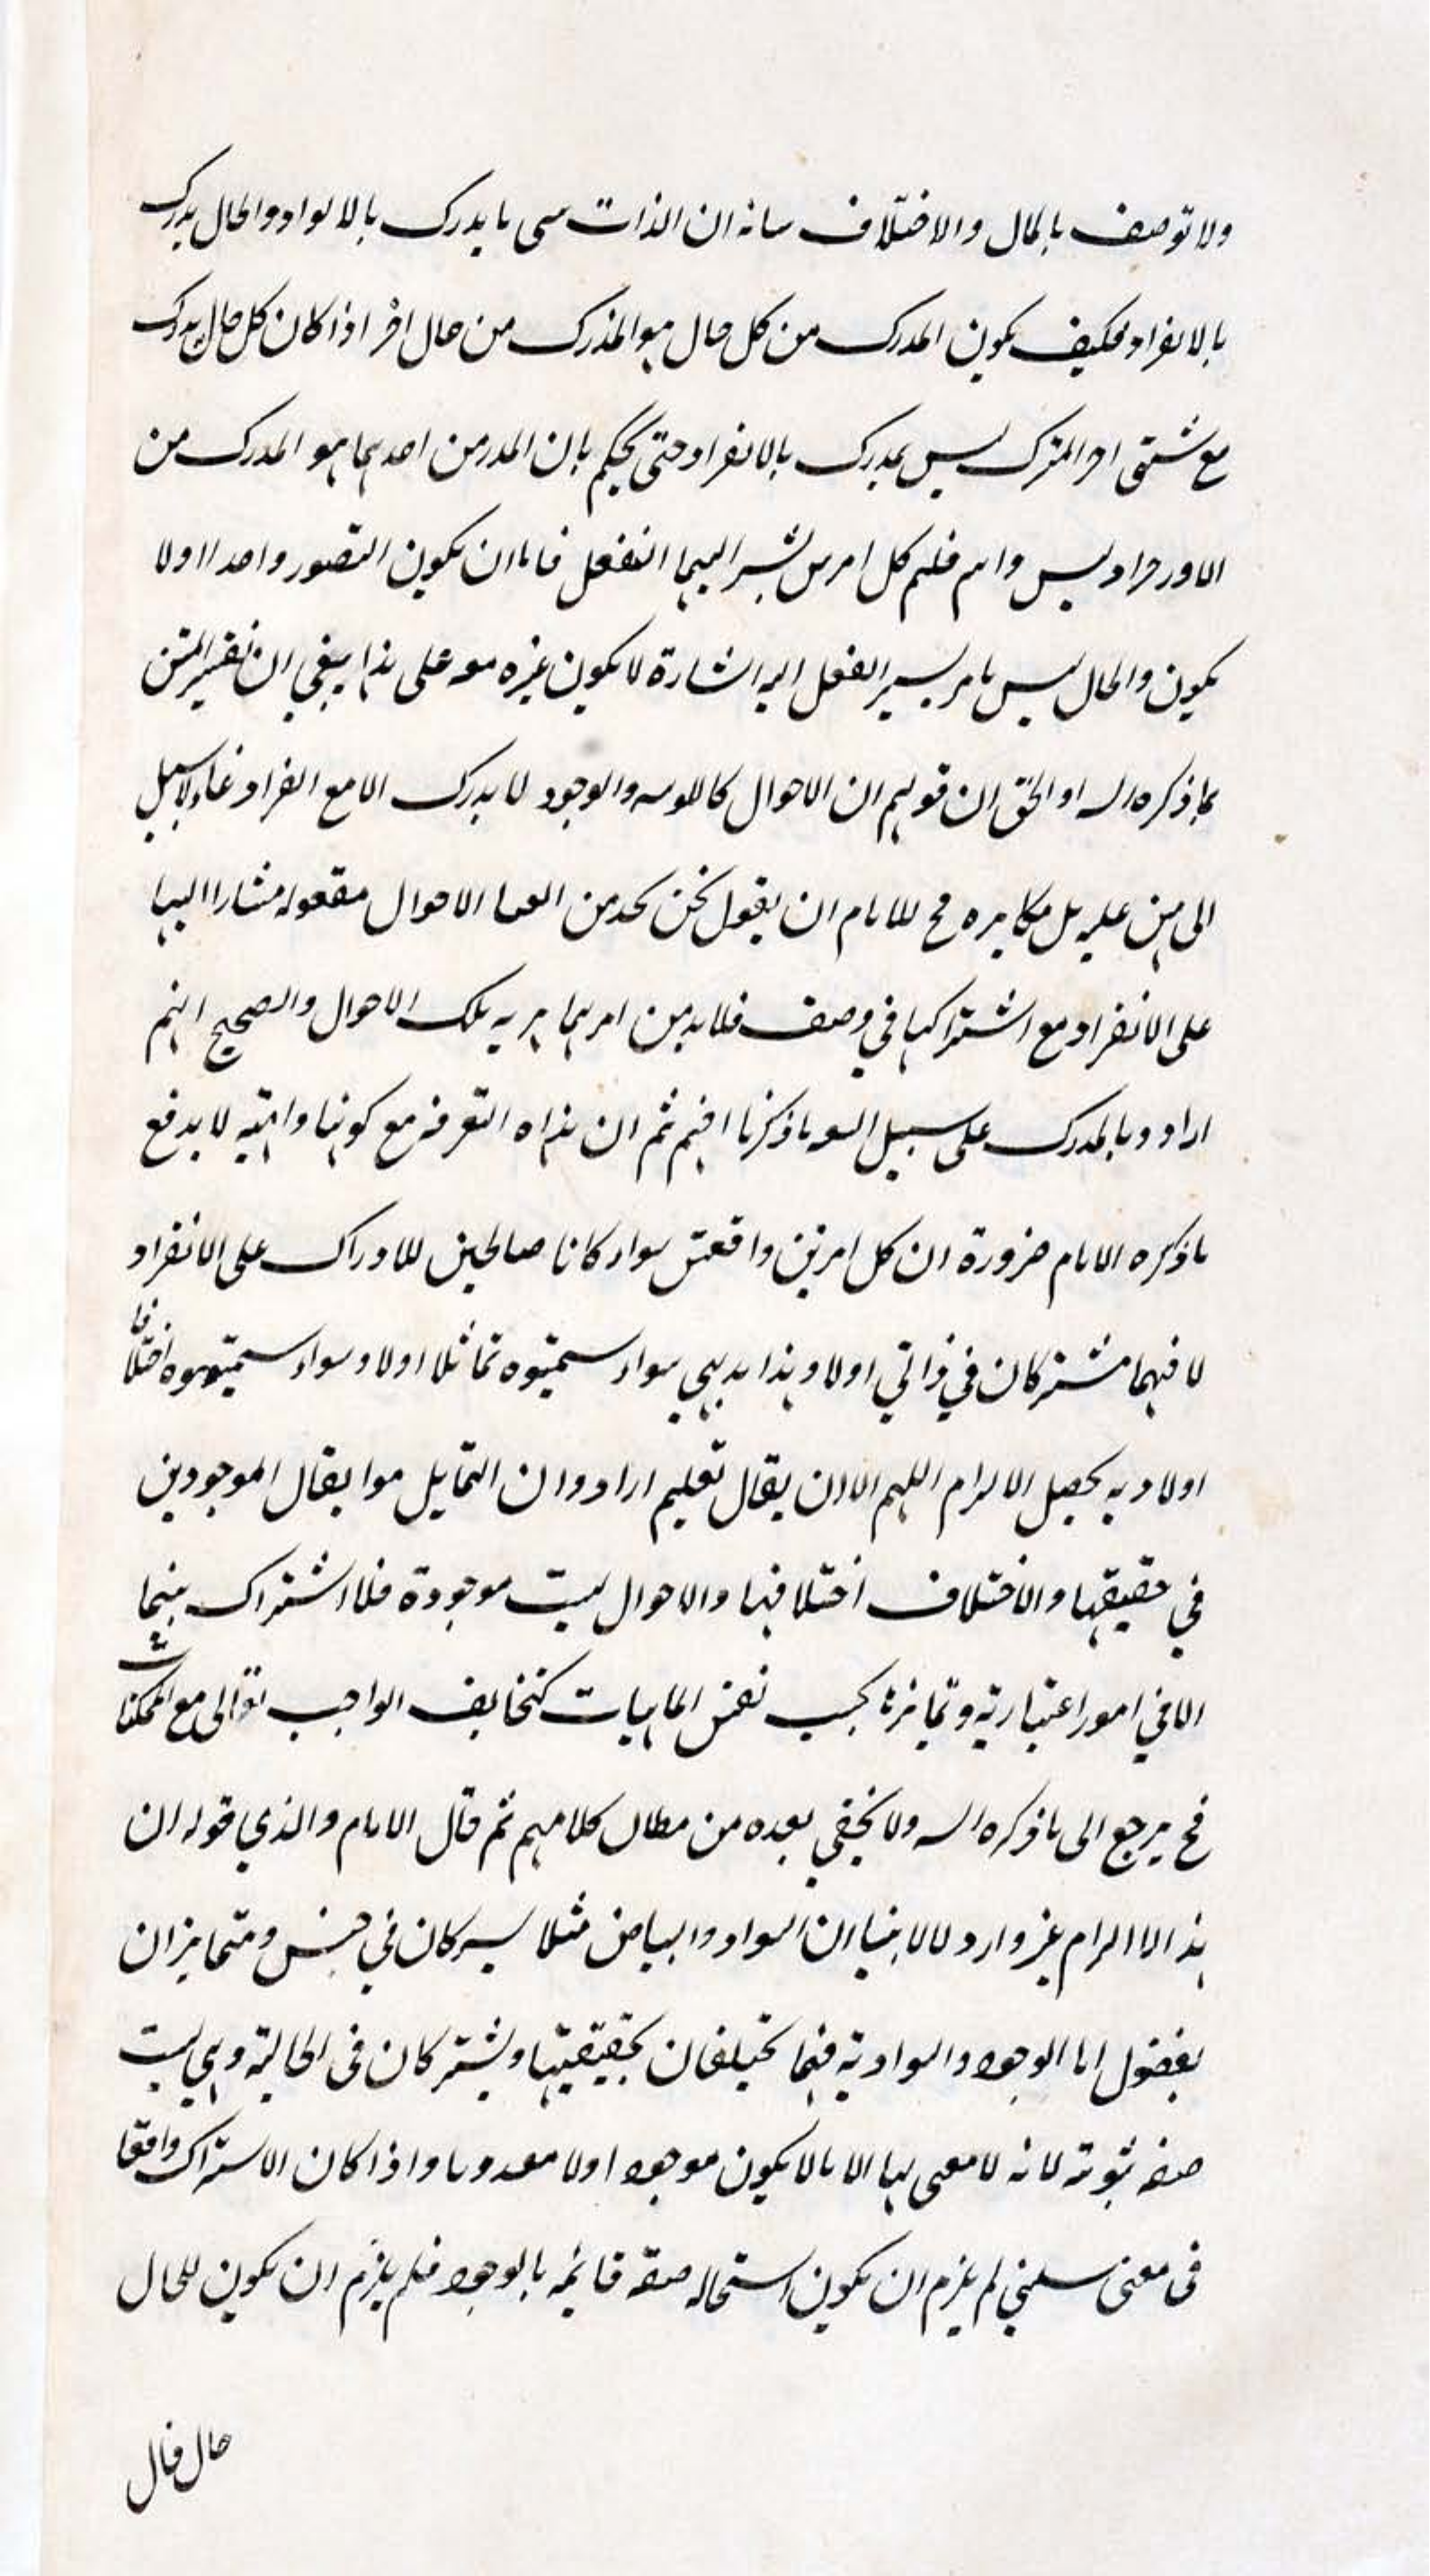 ولا توصف بالمال والاختلاف سانه ان الذات سى ما يدرك بالالواد والحال يدرك
بالانفراد فكيف يكون المدرك من كل حال هو المدرك من حال اخر اذا كان كل حال يدرك
مع شىء اخر المترك ليس بمدرك بالانفراد حتى يحكم بان المدر من احديهما هو المدرك من
الاور مراد ليس وا هم فلهم كل امرس يشير اليهما العقل فاما ان يكون التصور واحدا اولا
يكون والحال ليس بامر يسير العقل اليه اشارة لا يكون غيره معه على هذا ينبغي ان تفسير المتن
بما ذكره اله او الحق ان قولهم ان الاحوال كاللوسه والوجود لا يدرك الا مع الفراد عا ولا سبيل
الى من عليه بل مكابره فح للامام ان يقول نحن نجد من العا الاحوال مقعوله مشارا اليها
على الانفراد مع اشتراكها في وصف فلا بد من امر بها به تلك الاحوال والصحيح انهم
ارادو بالمدرك على سبيل السعه ما ذكرنا افهم ثم ان هذاه التفرقه مع كونها واهيه لا يدفع
ما ذكره الامام ضرورة ان كل امرين واقعتى سواء كانا صالحين للادراك على الانفراد
لا فهما مشتركان في ذاتي اولا وهذا بديهي سواء سميتوه تماثلا اولا وسواء سميتموه اختلافا
اولا وبه يحصل الالزام اللهم الا ان يقال تعليم ارادو ان التماثل هو ايقال الموجودين
في حقيقتها والاختلاف اختلافها والاحوال ليست موجودة فلا اشتراك بينهما
الا في امور اعتبارية وتمايزها بحسب نفس الماهيات كتخالف الواجب تعالى مع الممكنات
فح يرجع الى ما ذكره اله ولا يخفى بعده من مطان كلامهم ثم قال الامام والذي قوله ان
هذ الا الزام غير وارد لالا بينا ان السواد والبياض مثلا يسركان في جنس ومتمايزان
بفضول اما الوجود والسوادية فهما تختلفان بحقيقتيها ويشتركان في الحالية وهي ليست
صفه ثبوته لانه لا معى لها الا ما لا يكون موجودا ولا معدوما واذا كان الاستراك واقعا
في معنى سلبي لم يلزم ان يكون استحاله صفة قائمه بالوجود فلم يلزم ان يكون للحال
حال قال